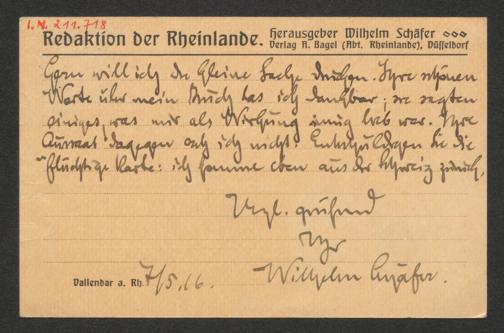 I.N. 211.718
Redaktion der Rheinlande. Herausgeber Wilhelm Schäfer
Verlag A. Bagel (Abt. Rheinlande), Düsseldorf
Gern will ich die kleine Sache drucken. Ihre schönen
Worte über mein Buch las ich dankbar; sie sagten
einiges, was mir als Wirkung innig lieb war. Ihre
dagegen sah ich nicht. Entschuldigen Sie die
flüchtige Karte: ich komme eben aus der Schweiz zurück.
grüßend
Ihr
Vallendar a. Rh. 7/5.16. Wilhelm Schäfer.